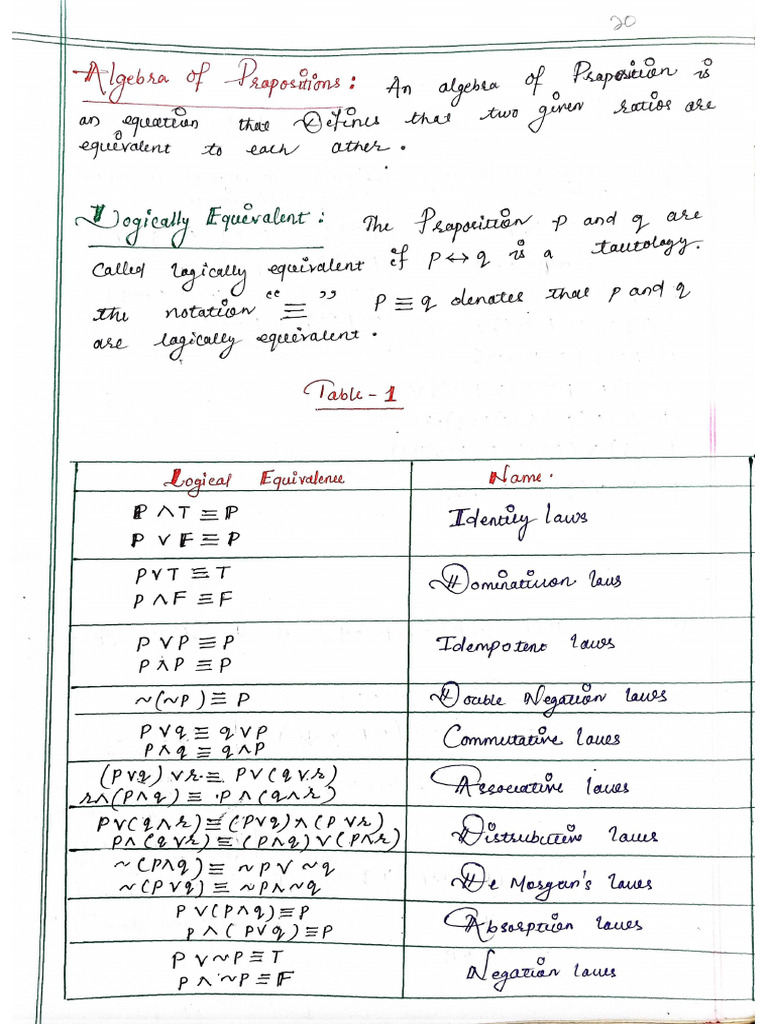 20
Algebra of Propositions: An algebra of Proposition is
an equation that Defines that two given ratios are
equivalent to each other.
Logically Equivalent: The Proposition p and q are
Called logically equivalent if p ↔ q is a tautology.
the notation “ ≡ ” P ≡ q denotes that p and q
are logically equivalent.
Table - 1
Logical Equivalence Name.
P ∧ T ≡ P
P ∨ F ≡ P
Identity laws
P ∨ T ≡ T
P ∧ F ≡ F
Dominatiion laws
P ∨ P ≡ P
P ∧ P ≡ P
Idempotent laws
~(~P) ≡ P Double Negation laws
P ∨ q ≡ q ∨ P
P ∧ q ≡ q ∧ P
Commutative laws
(P ∨ q) ∨ r ≡ P ∨ (q ∨ r)
r ∧ (P ∧ q) ≡ P ∧ (q ∧ r)
Associative laws
P ∨ (q ∧ r) ≡ (P ∨ q) ∧ (P ∨ r)
P ∧ (q ∨ r) ≡ (P ∧ q) ∨ (P ∧ r)
Distribution laws
~(P ∧ q) ≡ ~P ∨ ~q
~(P ∨ q) ≡ ~P ∧ ~q
De Morgan's laws
P ∨ (P ∧ q) ≡ P
P ∧ (P ∨ q) ≡ P
Absorption laws
P ∨ ~P ≡ T
P ∧ ~P ≡ F
Negation laws